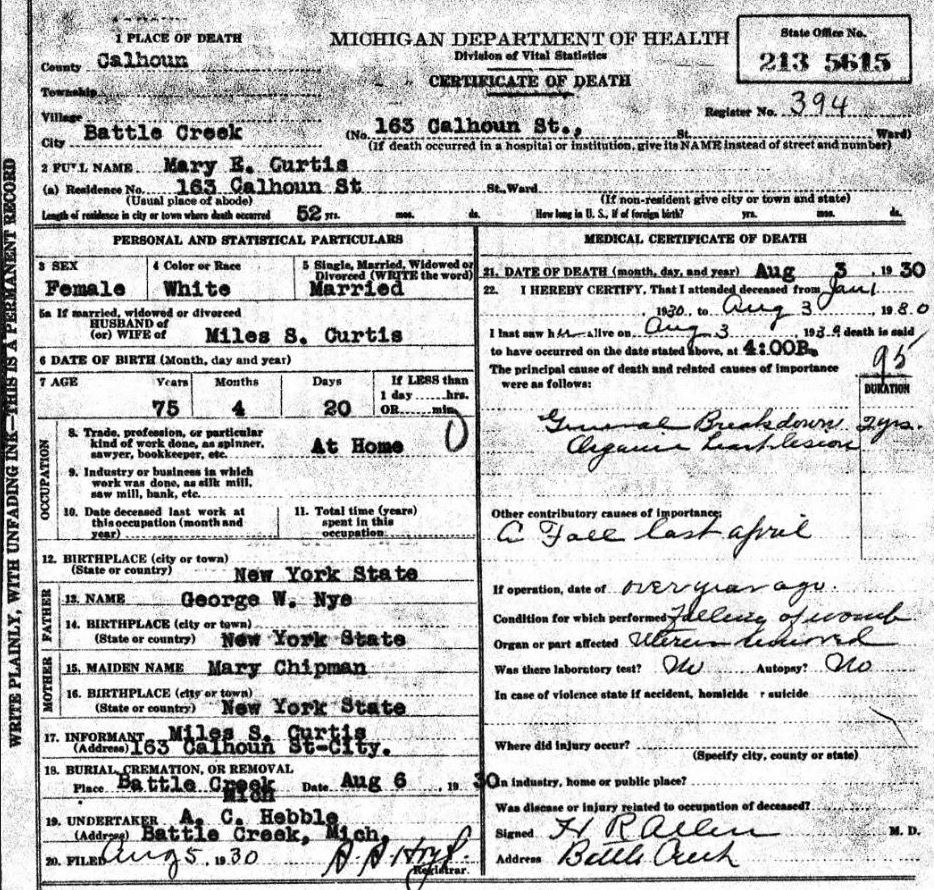 1 PLACE OF DEATH
County Calhoun
Township
Village
City Battle Creek
MICHIGAN DEPARTMENT OF HEALTH
Division of Vital Statistics
CERTIFICATE OF DEATH
State Office No.
213 5615
Register No. 394
(No. 163 Calhoun St., St. Ward)
(If death occurred in a hospital or institution, give its NAME instead of street and number)
2 FULL NAME Mary E. Curtis
(a) Residence No. 163 Calhoun St St., Ward
(Usual place of abode) (If non-resident give city or town and state)
Length of residence in city or town where death occurred 52 yrs. mos. ds. How long in U. S., if of foreign birth? yrs. mos. ds.
WRITE PLAINLY, WITH UNFADING INK—THIS IS A PERMANENT RECORD
PERSONAL AND STATISTICAL PARTICULARS
3 SEX
Female
4 Color or Race
White
5 Single, Married, Widowed or
Divorced (WRITE the word)
Married
5a If married, widowed or divorced
HUSBAND of
(or) WIFE of Miles S. Curtis
6 DATE OF BIRTH (Month, day and year)
7 AGE Years Months Days If LESS than
1 day hrs.
75 4 20 OR min.
0
OCCUPATION
8. Trade, profession, or particular
kind of work done, as spinner,
sawyer, bookkeeper, etc. At Home
9. Industry or business in which
work was done, as silk mill,
saw mill, bank, etc.
10. Date deceased last work at
this occupation (month and
year)
11. Total time (years)
spent in this
occupation
12. BIRTHPLACE (city or town)
(State or country) New York State
FATHER
13. NAME George W. Nye
14. BIRTHPLACE (city or town)
(State or country) New York State
MOTHER
15. MAIDEN NAME Mary Chipman
16. BIRTHPLACE (city or town)
(State or country) New York State
17. INFORMANT Miles S. Curtis
(Address) 163 Calhoun St-City.
18. BURIAL, CREMATION, OR REMOVAL
Place Battle Creek Date Aug 6, 1930
Mich
19. UNDERTAKER A. C. Hebble
(Address) Battle Creek, Mich,
20. FILED Aug 5, 1930
Registrar.
MEDICAL CERTIFICATE OF DEATH
21. DATE OF DEATH (month, day, and year) Aug 3, 1930
22. I HEREBY CERTIFY, That I attended deceased from Jan 1
1930, to Aug 3 1930
I last saw her alive on Aug 3 1930 death is said
to have occurred on the date stated above, at 4:00P.
The principal cause of death and related causes of importance
were as follows:
95
DURATION
General Breakdown 2 yrs.
Organic heart lesion
Other contributory causes of importance:
A Fall last april
If operation, date of over year ago.
Condition for which performed Falling of womb
Organ or part affected Uterus removed
Was there laboratory test? No Autopsy? No
In case of violence state if accident, homicide r suicide
Where did injury occur?
(Specify city, county or state)
In industry, home or public place?
Was disease or injury related to occupation of deceased?
Signed H R Allen M. D.
Address Battle Creek